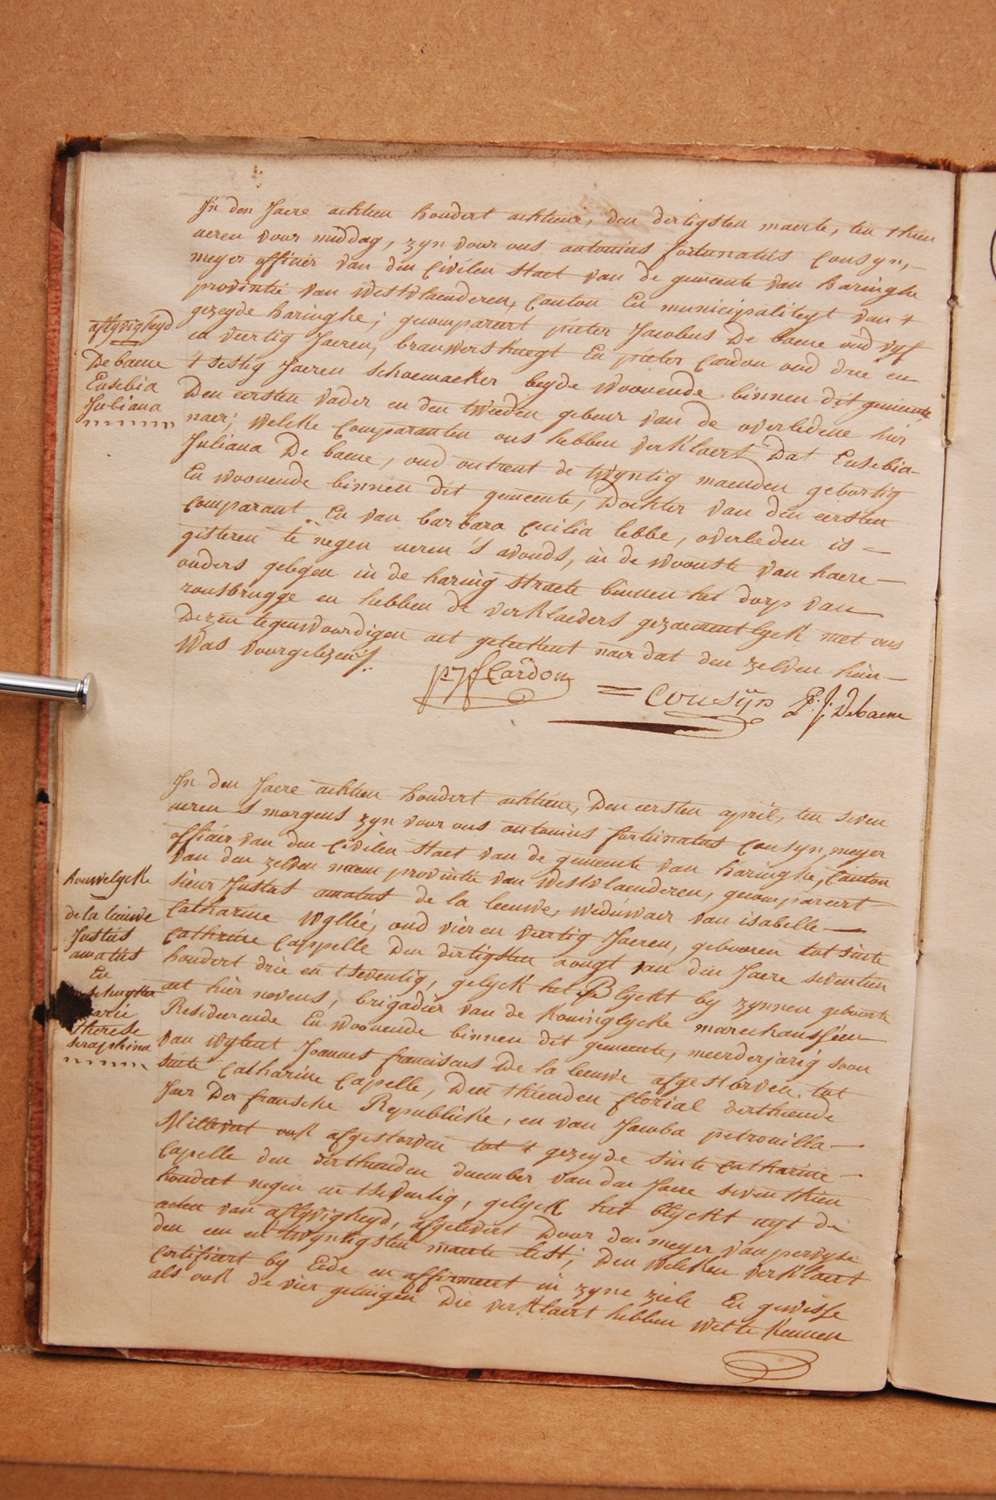 In den Jaere achtien hondert achtiene, den dertigsten maerte, ten thien
ueren voor middag, zyn voor ons antonius fortunatus Cousyn,
meyer officier van den Civilen staet van de gemeente van haringhe
provintie van Westvlaenderen, Canton En municipaliteyt van t
gezeyde haringhe; gecompareert pieter Jacobus De baene oud vyf
en veertig Jaeren, brauwersknegt En pieter Cardon oud drie en
t sestig Jaeren schoemaeker beyde woonende binnen dit gemeente,
Den eersten vader en den tweeden gebeur van de overledene hier
naer; welcke Comparanten ons hebben verklaert Dat Eusebia
Juliana De baene, oud ontrent de twyntig maenden gebortig
En woonende binnen dit gemeente, Dochter van den eersten
Comparant En van barbara Cecilia lebbe, overleden is
gisteren te negen ueren 's avonds, in de woonste van haere
ouders gelegen in de haring straete binnen het dorp van
rousbrugge en hebben de verklaeders gezaementlyck met ons
Dezen tegenwoordigen act geteekent naer dat den zelven hun
Was voorgelezen
afleyvigheyd
De baene
Eusebia
Juliana
Cardon
Cousÿn
P: J: Debaene
In den Jaere achtien hondert achtiene, Den eersten april, ten seven
ueren s morgens zyn voor ons antonius fortunatus Cousyn meyer
officier van den Civilen staet van de gemeente van haringhe, Canton
van den zelven naem provintie van Westvlaenderen, gecompareert
sieur Justus amatus de la leeuwe, weduwaer van isabelle
Catharine Wyllié, oud vier en viertig Jaeren, gebooren tot sinte
Cathrine Cappelle den dertigsten ougt van den Jaere seventien
hondert drie en tseventig, gelyck het blyckt by zynnen geboorte
act hier nevens, brigadier van de koninglycke marechaussée
Residerende En woonende binnen dit gemeente, meerderjarig soon
van wylent Joannes franciscus De la leeuwe afgestorven tot
sinte Catharine Capelle, Den thienden florial derthiende
Jaer Der fransche Republicke, en van Jacoba petronilla
ook afgestorven tot t gezeyde sinte Catharine
Capelle den derthienden december van den Jaere seventhien
hondert negen en tseventig, gelyck het blyckt uyt de
acten van aflyvigheyd, afgelevert Door den meyer van pervyse
den een en twyntigsten maerte lest; Den welcken verklaert
Certifieert by Eede en affirmeert in zyne ziele En gewisse
als ook de vier getuigen Die verklaert hebben wel te kennen
houwelyck
de la leeuwe
Justus
amatus
En
Therese
seraphina